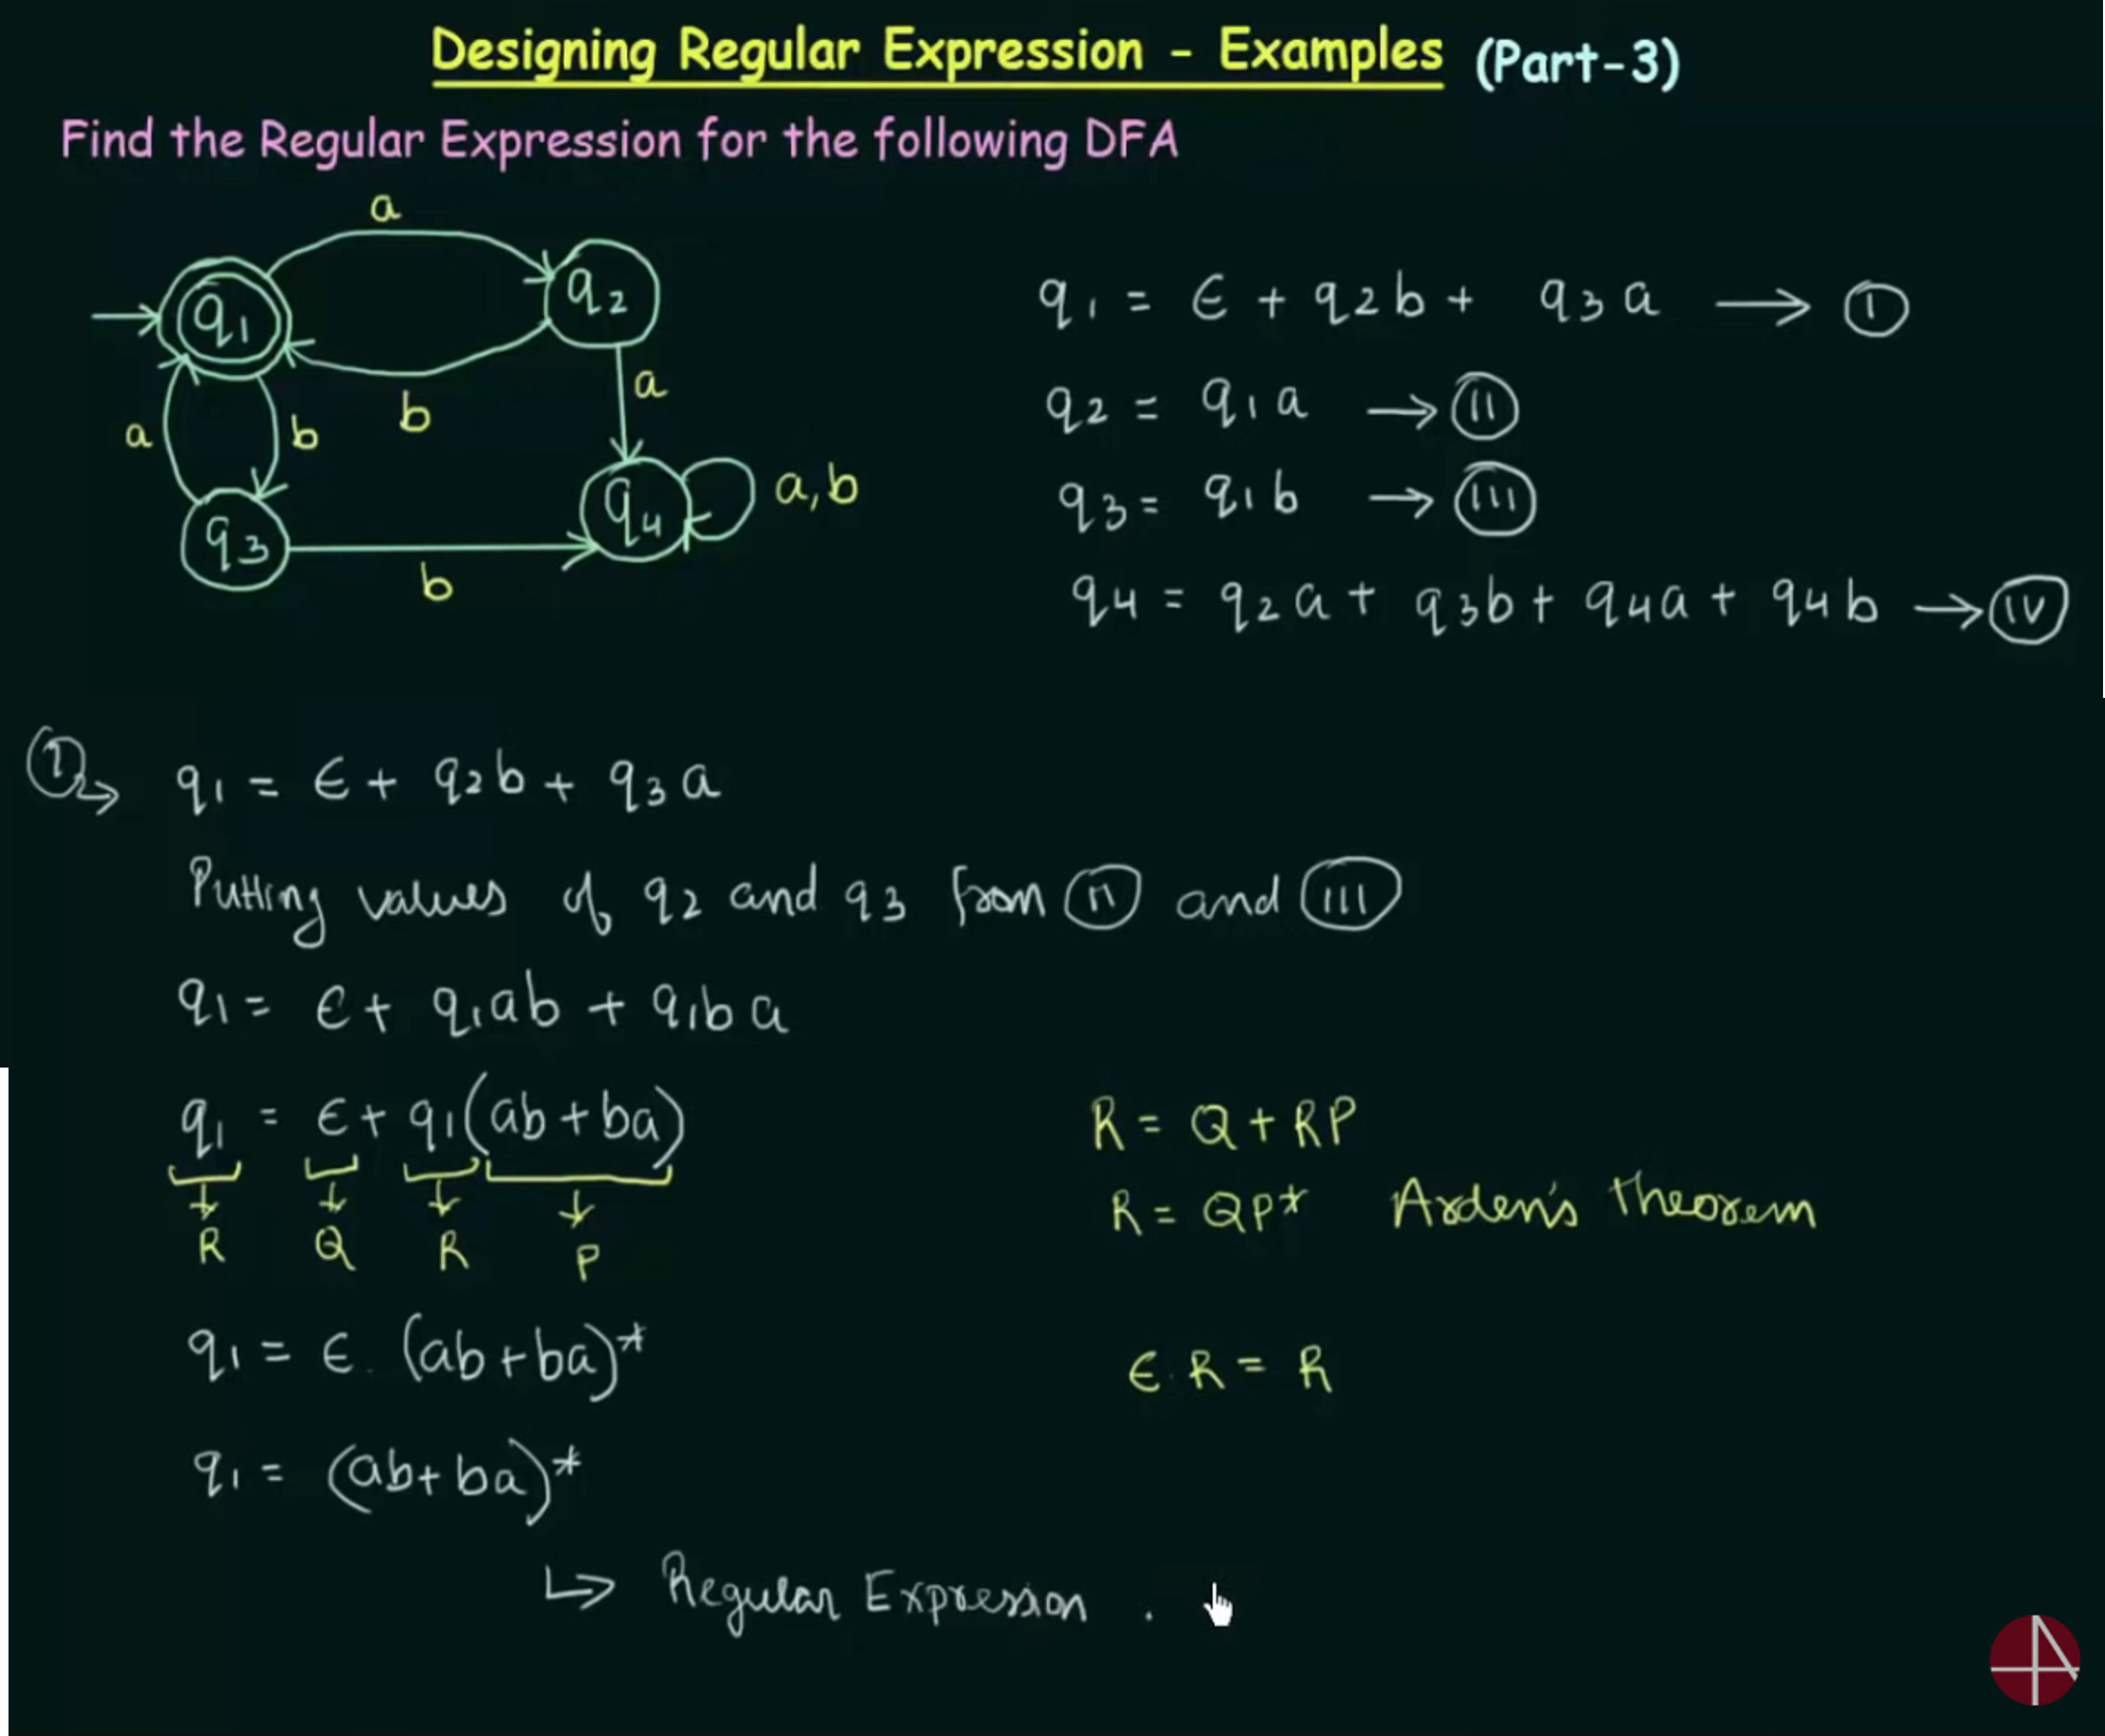 Designing Regular Expression - Examples (Part-3)
Find the Regular Expression for the following DFA
a
q1
q2
b
a
a
b
q3
q4
a,b
b
q1 = ε + q2b + q3a → (I)
q2 = q1a → (II)
q3 = q1b → (III)
q4 = q2a + q3b + q4a + q4b → (IV)
(1) → q1 = ε + q2b + q3a
Putting values of q2 and q3 from (II) and (III)
q1 = ε + q1ab + q1ba
q1 = ε + q1(ab + ba)
R Q R P
R = Q + RP
R = QP* Arden's theorem
q1 = ε. (ab+ba)*
ε.R = R
q1 = (ab+ba)*
↳ Regular Expression .